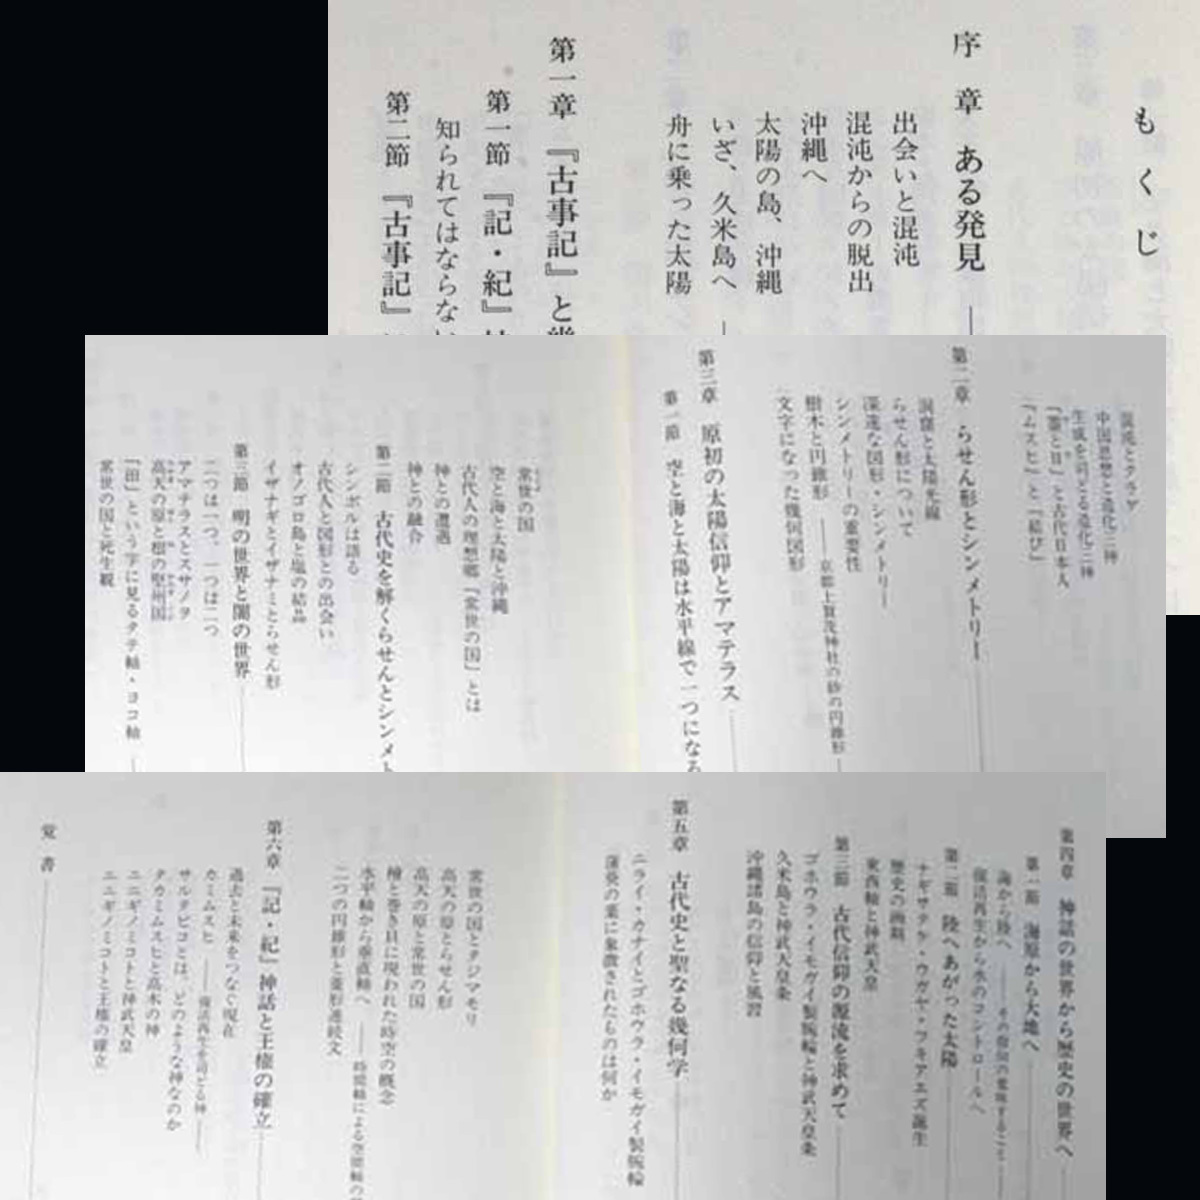 もくじ
序章 ある発見
出会いと混沌
混沌からの脱出
沖縄へ
太陽の島、沖縄
いざ、久米島へ
舟に乗った太陽
第一章 『古事記』と
第一節 『記・紀』は
知られてはならない
第二節 『古事記』
混沌とクラゲ
中国思想と造化三神
生成を司どる造化三神
『霊と日』と古代日本人
『ムスヒ』と『結び』
第二章 らせん形とシンメトリー
洞窟と太陽光線
らせん形について
深遠な図形・シンメトリー
シンメトリーの重要性
樹木と円錐形 ――京都上賀茂神社の砂の円錐形
文字になった幾何図形
第三章 原初の太陽信仰とアマテラス
第一節 空と海と太陽は水平線で一つになる
常世の国
空と海と太陽と沖縄
古代人の理想郷『常世の国』とは
神との遭遇
神との融合
第二節 古代史を解くらせんとシンメト
シンボルは語る
古代人と図形との出会い
オノゴロ島と塩の結晶
イザナギとイザナミとらせん形
第三節 明の世界と闇の世界
二つは一つ、一つは二つ
アマテラスとスサノヲ
高天の原と根の堅州国
『田』という字に見るタテ軸・ヨコ軸
常世の国と死生観
第四章 神話の世界から歴史の世界へ
第一節 海原から大地へ
海から陸へ
復活再生から水のコントロールへ
第二節 陸へあがった太陽
ナギサタケ・ウガヤ・フキアエズ誕生
歴史の画期
東西軸と神武天皇
第三節 古代信仰の源流を求めて
ゴホウラ・イモガイ製腕輪と神武天皇条
久米島と神武天皇条
沖縄諸島の信仰と風習
第五章 古代史と聖なる幾何学
ニライ・カナイとゴホウラ・イモガイ製腕輪
蒲葵の葉に象徴されたものは何か
常世の国とタジマモリ
高天の原とらせん形
高天の原と常世の国
檜と巻き貝に現われた時空の概念
水平軸から垂直軸へ ――時間軸による空間軸の
二つの円錐形と菱形連続文
第六章 『記・紀』神話と王権の確立
過去と未来をつなぐ現在
カミムスヒ ――復活再生を司どる神――
サルタビコとは、どのような神なのか
タカミムスヒと高木の神
ニニギノミコトと神武天皇
ニニギノミコトと王権の確立
覚書